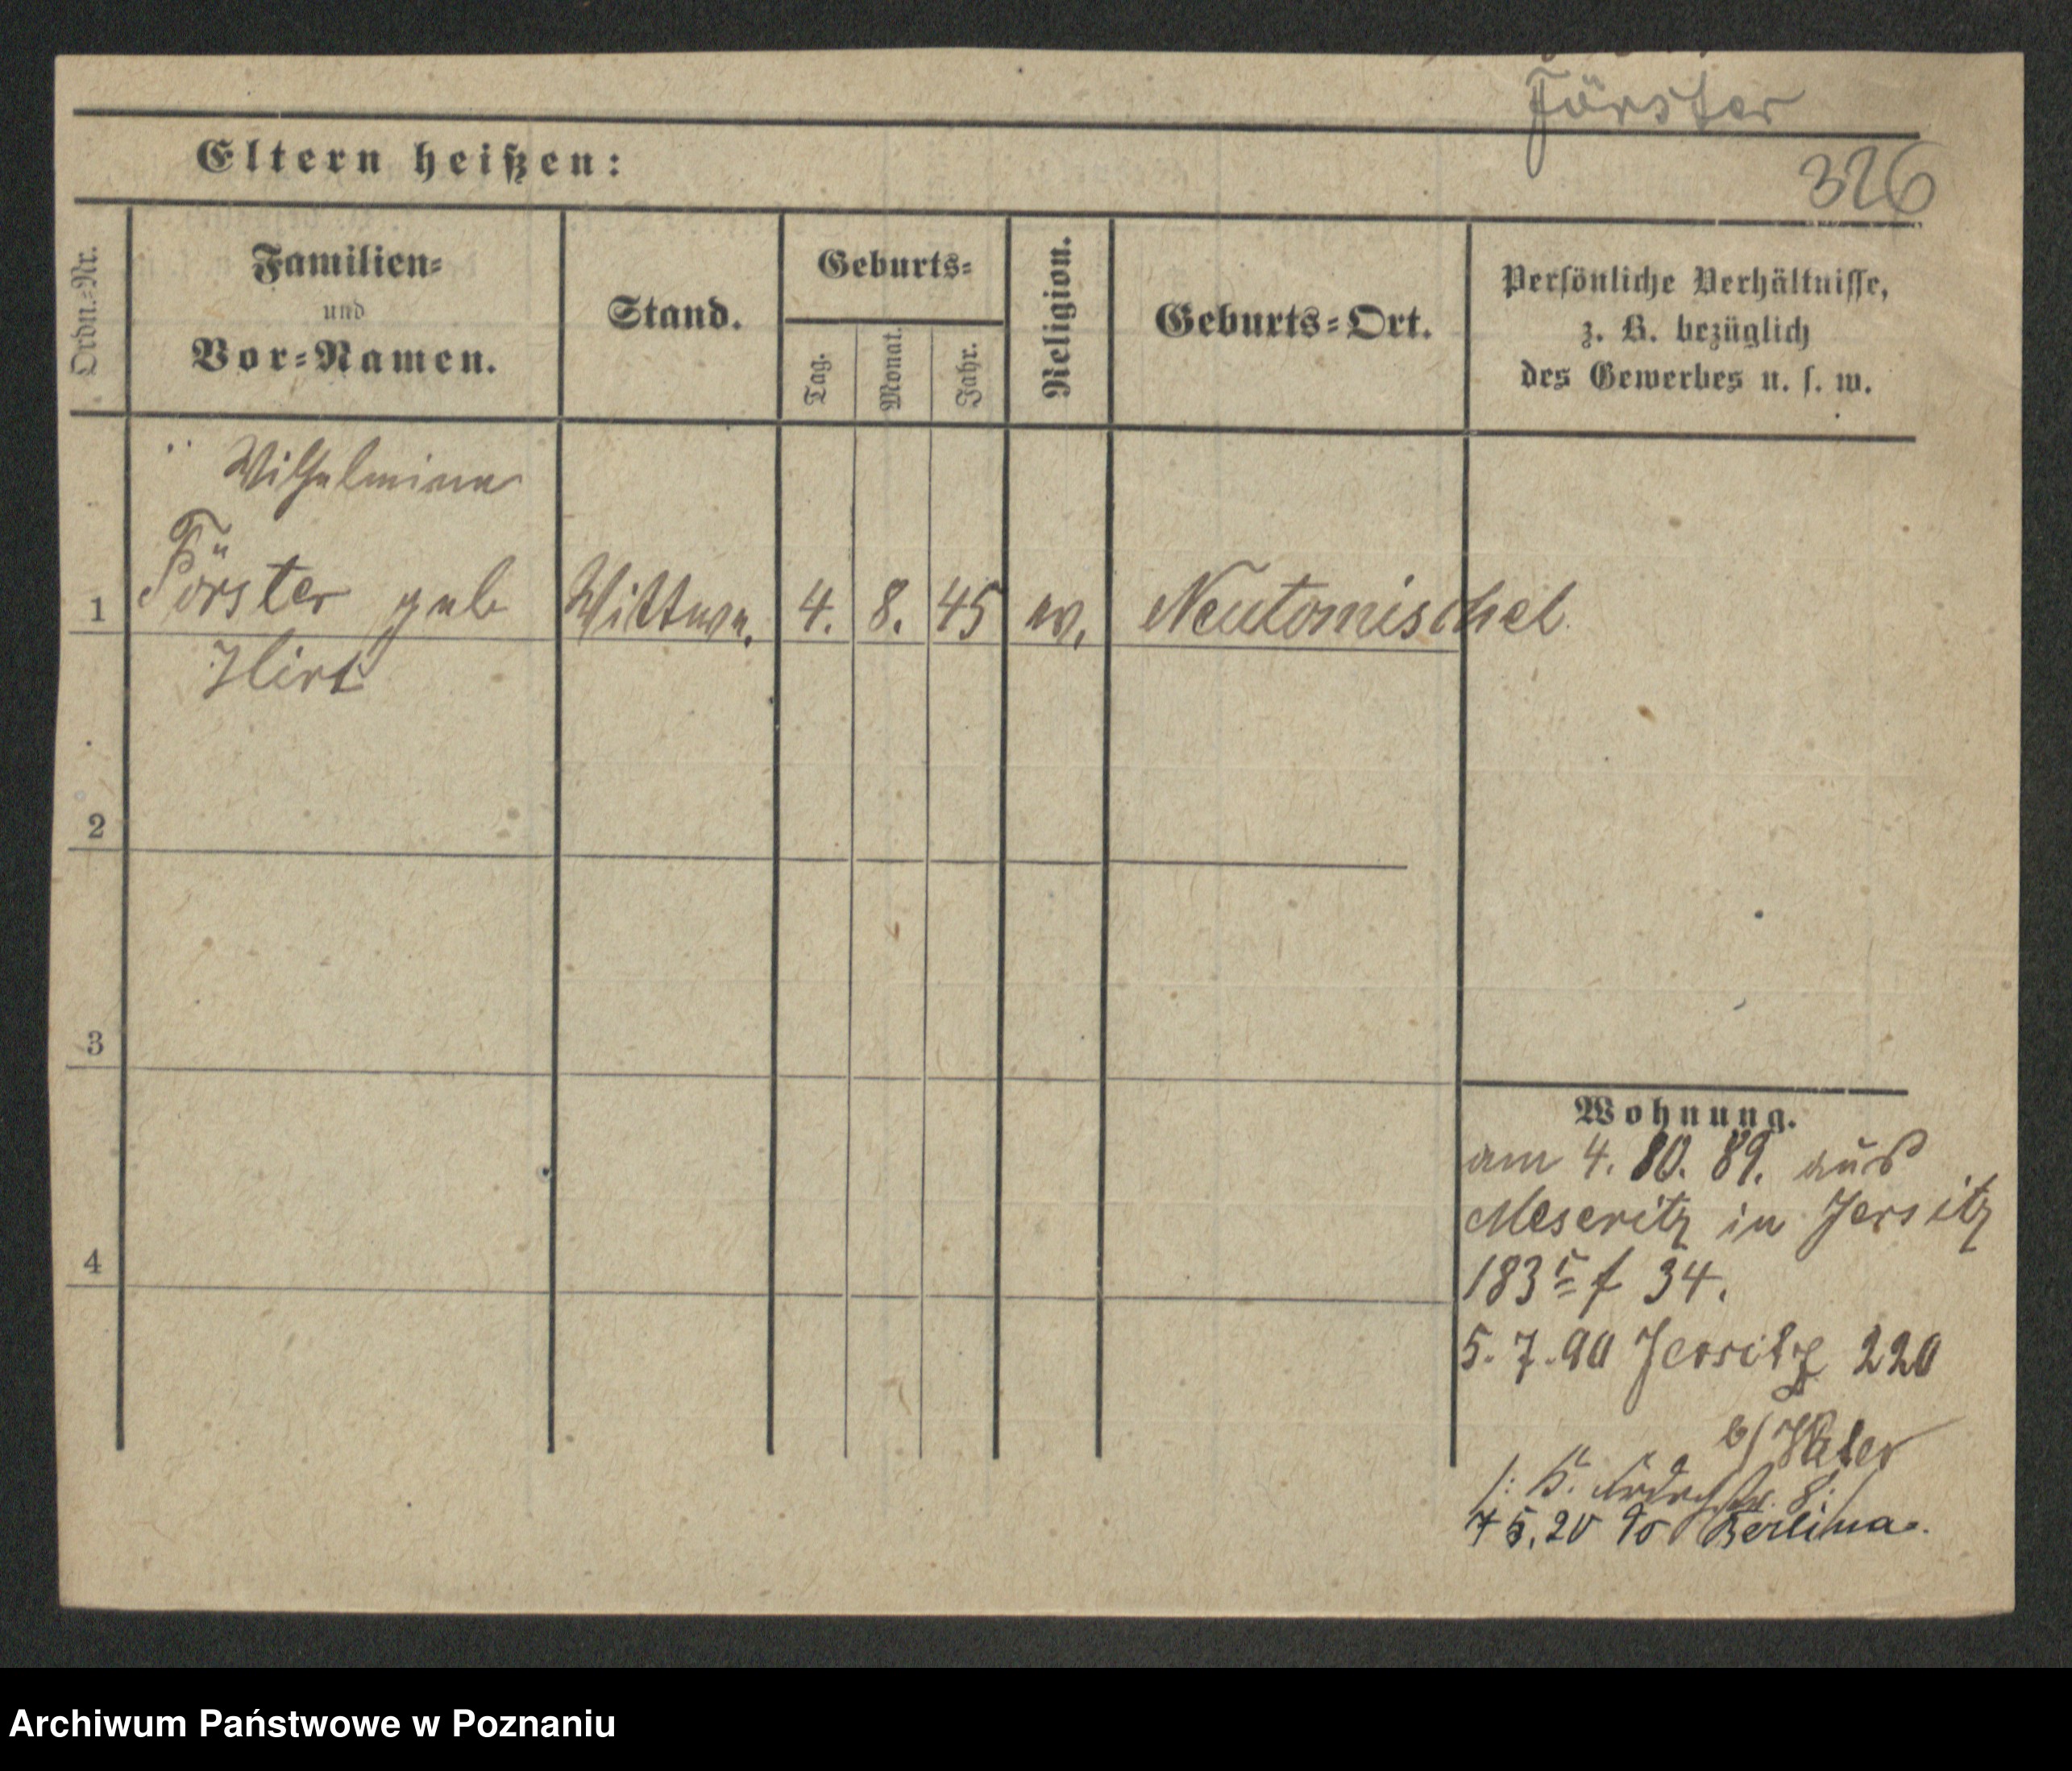 Förster
326
Eltern heißen:
Ordn.=Nr.
Familien=
und
Vor=Namen.
Stand.
Geburts=
Tag.
Monat.
Jahr.
Religion.
Geburts=Ort.
Persönliche Verhältnisse,
z. B. bezüglich
des Gewerbes u. s. w.
Wilhelmine
1 Förster geb Wittwe. 4. 8. 45 ev. Neutomischel
Hirt
2
3
4
Wohnung.
am 4. 10. 89. aus
Meseritz in Jersitz
183 f 34.
5. 7. 90 Jersitz 220
b/
Berlina
Archiwum Państwowe w Poznaniu